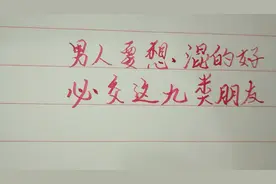 男人要想混的好
必交这九类朋友